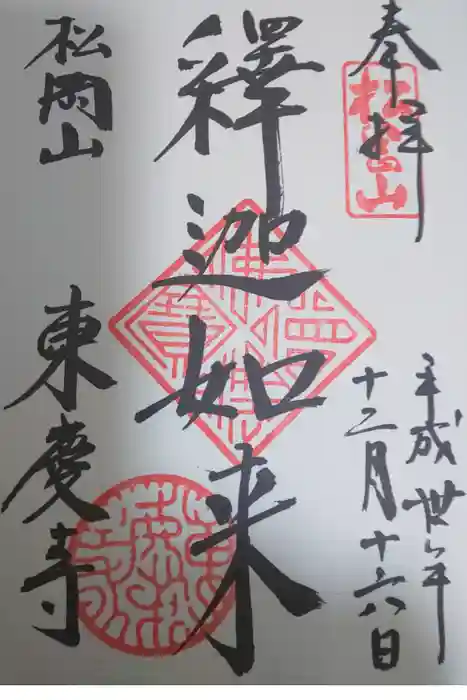 奉拝
松岡山
平成丗年
十二月十六日
釋迦如来
松岡山
東慶寺